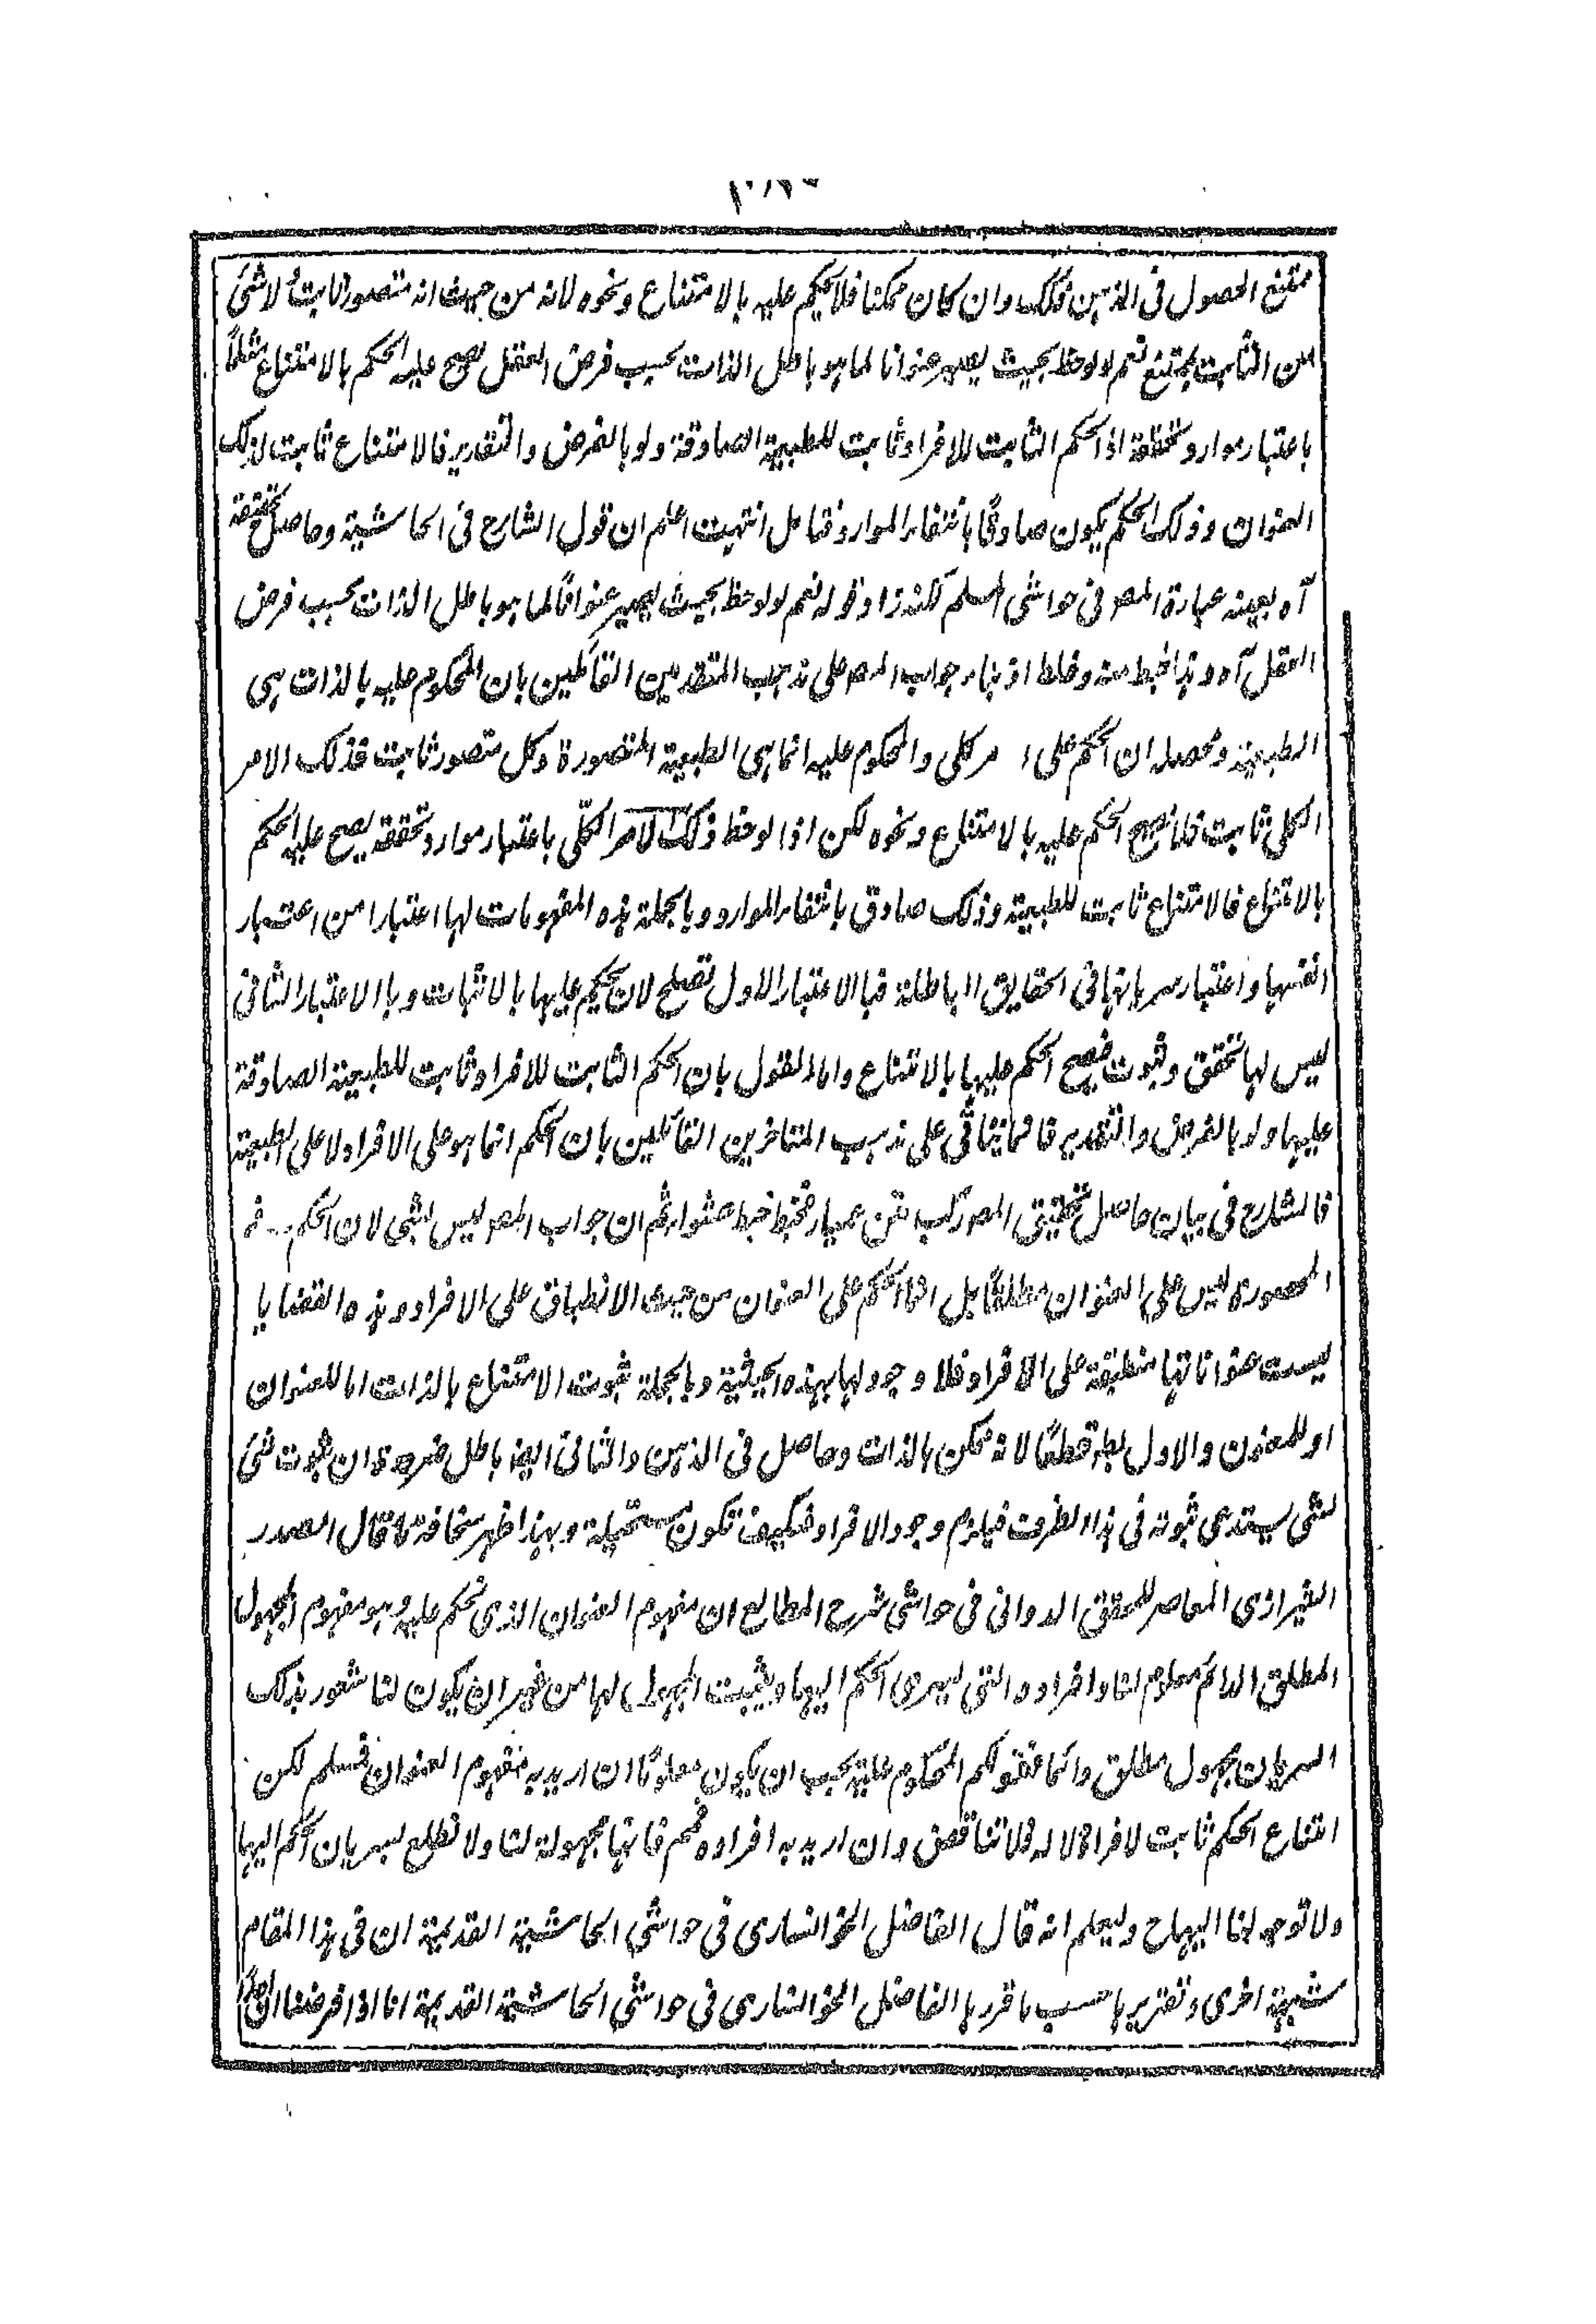 ممتنع الحصول فى الذهن فذلك وان كان ممكنا فلا يحكم عليه بالامتناع ونحوه لانه من حيث انه متصور ثابت ولا شئ
من الثابت بممتنع نعم لو لوحظ بحيث يصير عنوانا لما هو باطل الذات بحسب فرض العقل يصح عليه الحكم بالامتناع مثلاً
باعتبار موارد تحققه اذ الحكم الثابت للافراد ثابت للطبيعة الصادقة ولو بالفرض والتقدير فالامتناع ثابت لذلك
العنوان وذلك الحكم يكون صادقًا بانتفاء الموارد فتامل انتهيت اعلم ان قول الشارح فى الحاشية وحاصل تحقيقه
آه بعينه عبارة المصر فى حواشى السلم لكنه زاد قوله نعم لو لوحظ بحيث يصير عنوانًا لما هو باطل الذات بحسب فرض
العقل آه وهذا خبط منه وغلط اذ بناء جواب المصر على مذهب المتقدمين القائلين بان المحكوم عليه بالذات هى
الطبيعة ومحصله ان الحكم على ا مر كلى والمحكوم عليه انما هى الطبيعة المتصورة وكل متصور ثابت فذلك الامر
الكلى ثابت فلا يصح الحكم عليه بالامتناع ونحوه لكن اذا لوحظ ذلك الامر الكلّى باعتبار موارد تحققه يصح عليه الحكم
بالامتناع فالامتناع ثابت للطبيعة وذلك صادق بانتفاء الموارد وبالجملة هذه المفهومات لها اعتبارا من اعتبار
انفسها واعتبار سريانها فى الحقايق الباطلة فبالاعتبار الاول تصلح لان يحكم عليها بالاثبات وباالاعتبار الثانى
ليس لها تحقق وثبوت فيصح الحكم عليها بالامتناع واما القول بان الحكم الثابت للافراد ثابت للطبيعة الصادقة
عليها ولو بالفرض والتقدير فانما يتاتى على مذهب المتاخرين القائلين بان الحكم انما هو على الافراد لا على الطبيعة
فالشارح فى بيان حاصل تحقيق المصر ركب متن عمياء فخبط خبط عشواء ثم ان جواب المصر ليس بشى لان الحكم فى
المحصورة ليس على العنوان مطلقًا بل انما الحكم على العنوان من حيث الانطباق على الافراد وهذه القضايا
ليست عنواناتها منطبقة على الافراد فلا وجود لها بهذه الحيثية وبالجملة ثبوت الامتناع بالذات اما للعنوان
او للمعنون والاول بط قطعًا لانه ممكن بالذات وحاصل فى الذهن والثانى ايضا باطل ضرورة ان ثبوت شئ
لشى يستدعى ثبوته فى هذا الظرف فيلزم وجود الافراد فكيف تكون مستحيلة وبهذا ظهر سخافة ما قال الصدر
الشيرازى المعاصر للمحقق الدوانى فى حواشى شرح المطالع ان مفهوم العنوان الذى نحكم عليه وهو مفهوم المجهول
المطلق الدائم معلوم لنا وافراده التى يسرى الحكم اليها ويثبت المجهولية لها من غير ان يكون لنا شعور بذلك
السريان مجهول مطلق دائما فقولكم المحكوم عليه يجب ان يكون معلومًا ان اريد به مفهوم العنوان فمسلم لكن
امتناع الحكم ثابت لافراده لا له فلا تناقض وان اريد به افراده فمم فانها مجهولة لنا ولا نطلع لسريان الحكم اليها
ولا توجه لنا اليها اح وليعلم انه قال الفاضل الخوانسارى فى حواشى الحاشية القديمة ان فى هذا المقام
شبهة اخرى وتقريرها حسب ما قررها الفاضل الخوانسارى فى حواشى الحاشية القديمة انا اذا فرضنا ان احدًا